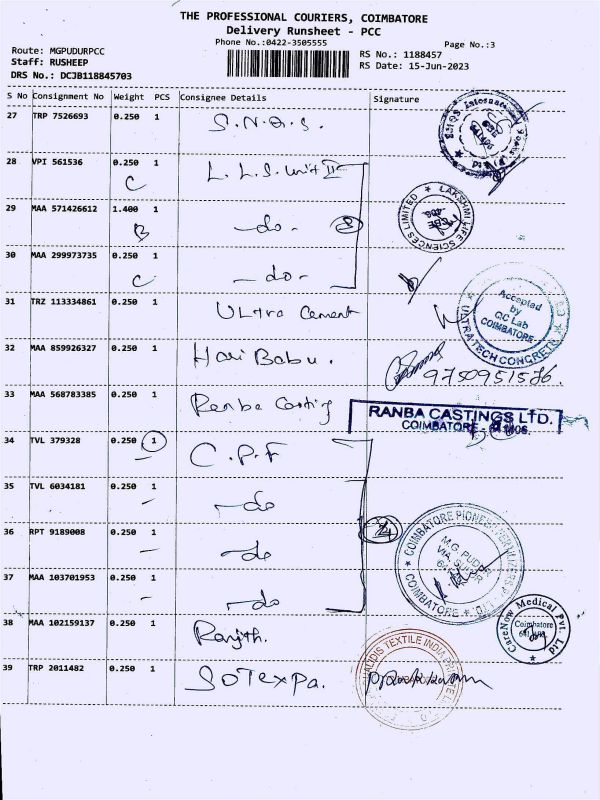 THE PROFESSIONAL COURIERS, COIMBATORE
Delivery Runsheet - PCC
Phone No.:0422-3505555
Page No.:3
Route: MGPUDURPCC
Staff: RUSHEEP
DRS No.: DCJB118845703
RS No.: 1188457
RS Date: 15-Jun-2023
S No Consignment No Weight PCS Consignee Details Signature
27 TRP 7526693 0.250 1 S.N.Q.S.
28 VPI 561536 0.250 1 L.L.S. Unit II
C
29 MAA 571426612 1.400 1 -do-
B
30 MAA 299973735 0.250 1 -do-
C
LAKSHMI LIFE SCIENCES LIMITED
31 TRZ 113334861 0.250 1 Ultra Cement
Accepted
by
QC Lab
COIMBATORE
ULTRATECH CONCRETE
32 MAA 859926327 0.250 1 Hari Babu.
9750951586.
33 MAA 568783385 0.250 1 Ranba Casting
RANBA CASTINGS LTD.
COIMBATORE -
34 TVL 379328 0.250 1 C.P.F
35 TVL 6034181 0.250 1 -do
36 RPT 9189008 0.250 1 -do
37 MAA 103701953 0.250 1 -do
COIMBATORE PIONEER FERTILIZERS
M.G. PUDUR
VIA. SULUR
COIMBATORE
38 MAA 102159137 0.250 1 Ranjith.
CareNow Medical Pvt. Ltd
Coimbatore
39 TRP 2011482 0.250 1 SOTexpa.
TEXTILE INDIA